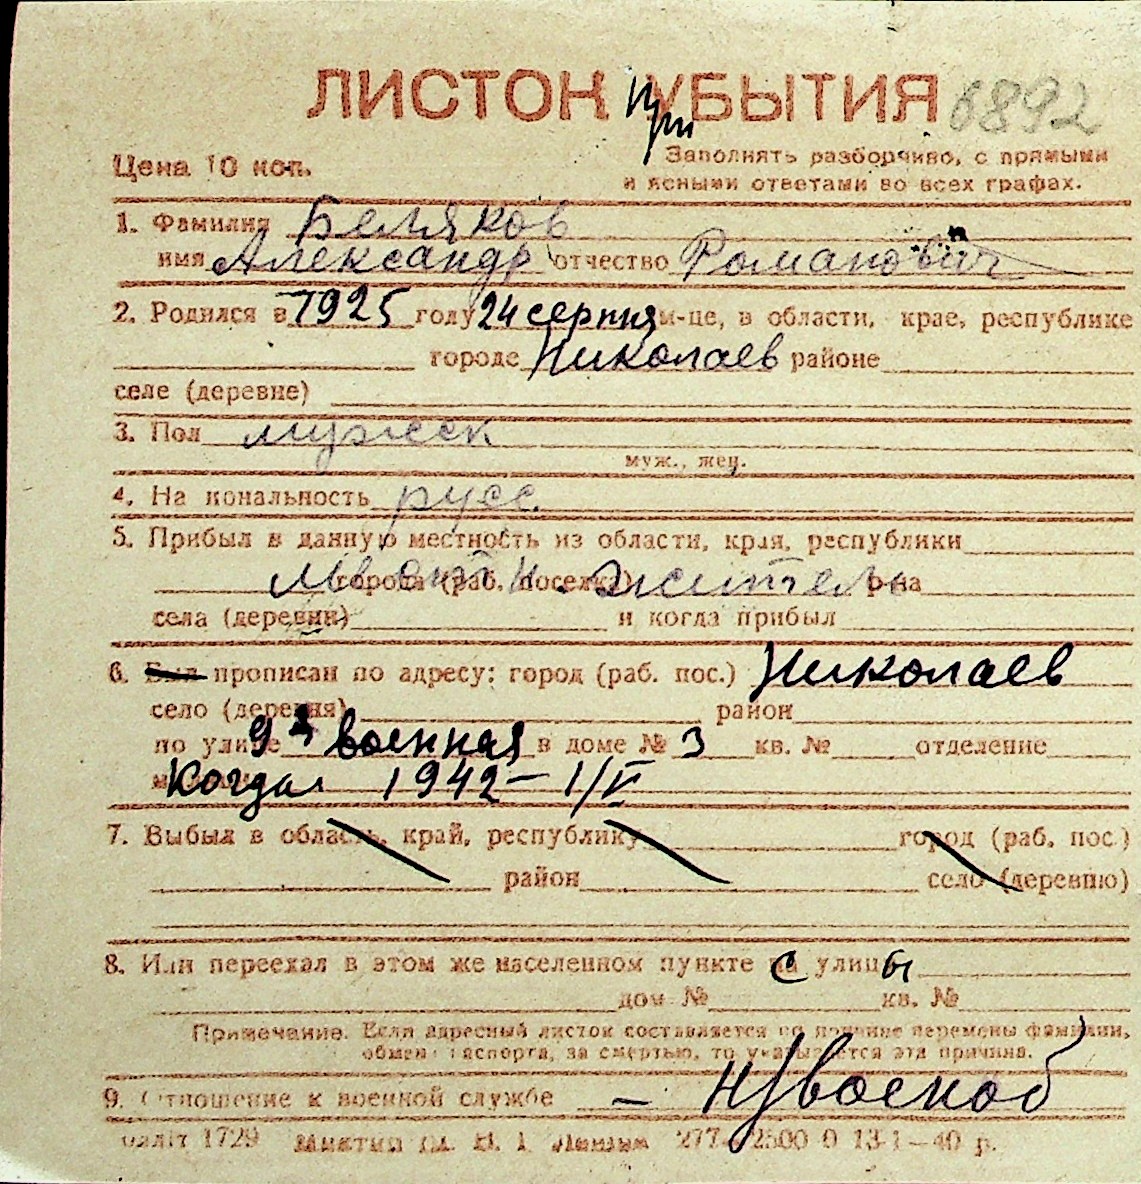 ЛИСТОК При УБЫТИЯ 6892
Цена 10 коп.
Заполнять разборчиво, с прямыми
и ясными ответами во всех графах.
1. Фамилия Беляков
имя Александр отчество Романович
2. Родился в 1925 году 24 серпня м-це, в области, крае, республике
городе Николаев районе
селе (деревне)
3. Пол мужеск
муж., жен.
4. На иональность русс.
5. Прибыл в данную местность из области, края, республики
города (раб. поселка) р-на
житель
села (деревни) и когда прибыл
6. Был прописан по адресу: город (раб. пос.) Николаев
село (деревня) район
по улице 9я военная в доме № 3 кв. № отделение
Когда 1942 - 1/V
7. Выбыл в область, край, республику город (раб. пос.)
район село (деревню)
8. Или переехал в этом же населенном пункте с улицы
дом № кв. №
Примечание. Если адресный листок составляется по причине перемены фамилии,
обмен паспорта, за смертью, то указывается эта причина.
9. Отношение к военной службе - н/военоб
1729 277-2500 0 13-1-40 р.